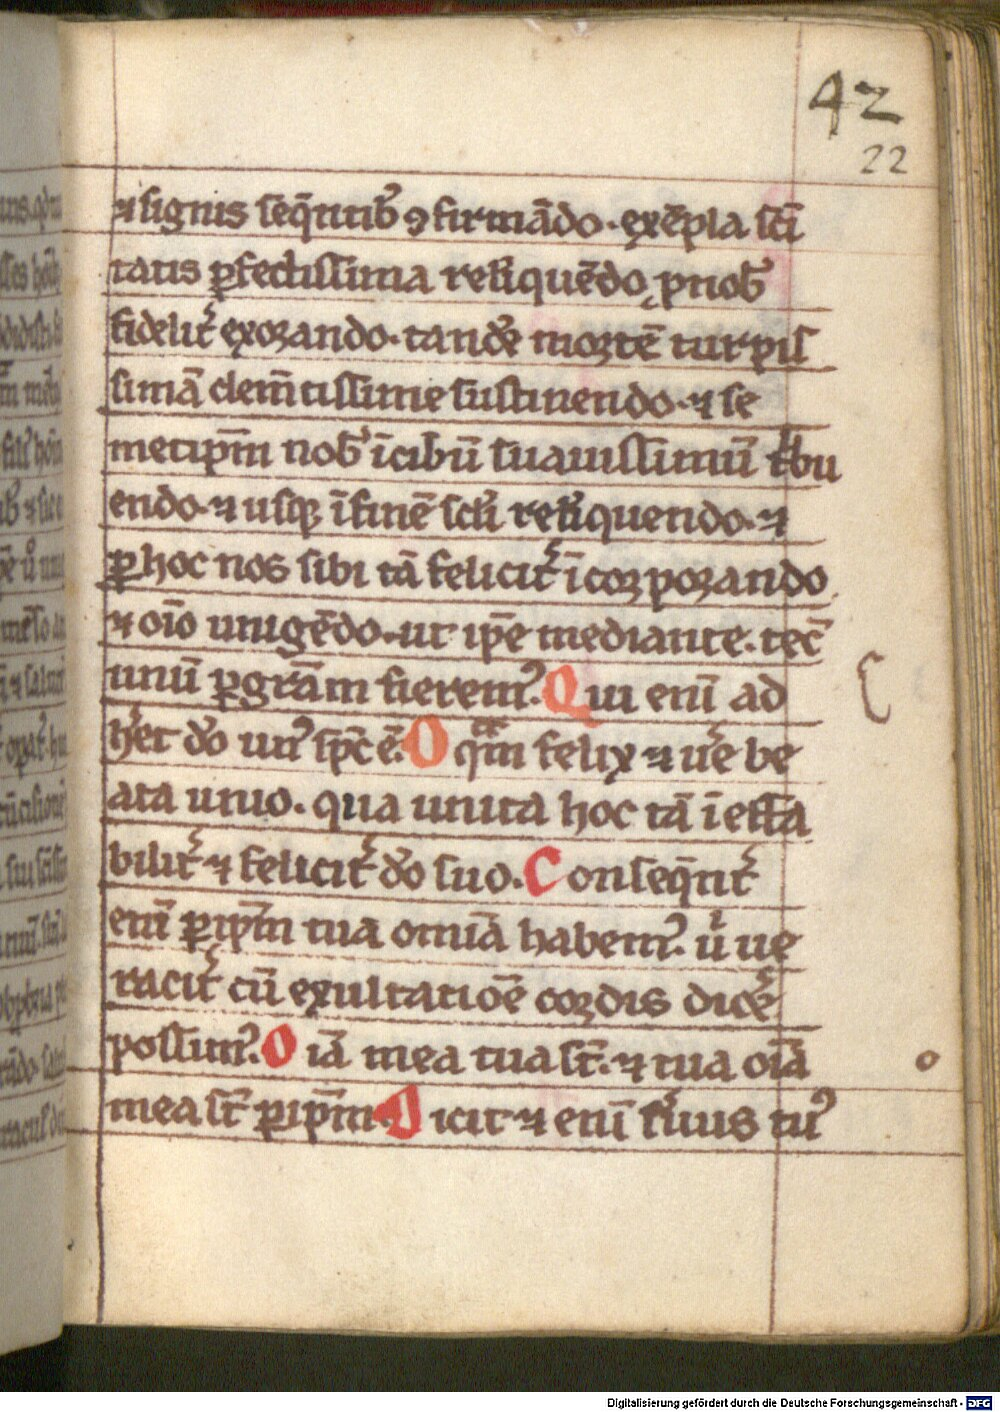 42
22
⁊ signis seq̄ntib᷒ ꝯfirmādo. exēpla sc̄i
tatis ꝑfectissima reliquēdo, ꝓ nob᷒
fidelit᷒ exorando. tandē mortē turpis
simā clem̄tissime sustinendo. ⁊ se
metip̄m nob᷒ ī cibū suauissimū tͥbu
endo. ⁊ usqꝫ ī finē sc̄li reliquendo. ⁊
ꝑ hoc nos sibi tā felicit᷒ īcorporando
⁊ oīo unigēdo. ut ip̄e mediante. tecū
unū ꝑ gr̄am fierem᷒. Qui enī ad
heret dō un᷒ sp̄c ē. O q̄m felix ⁊ uͤe be
ata unio. qua unita hoc tā ī effa
bilit᷒ ⁊ felicit᷒ dō suo. Conseq̄nt᷒
enī ꝑ ip̄m tua omīa habem᷒. ut ue
racit᷒ cū exultatiōe cordis dice᷒
possim᷒. Oīa mea tua st̄. ⁊ tua oīa
mea st̄ ꝑ ip̄m. Dicit ⁊ enī seruus tu᷒
Digitalisierung gefördert durch die Deutsche Forschungsgemeinschaft - DFG